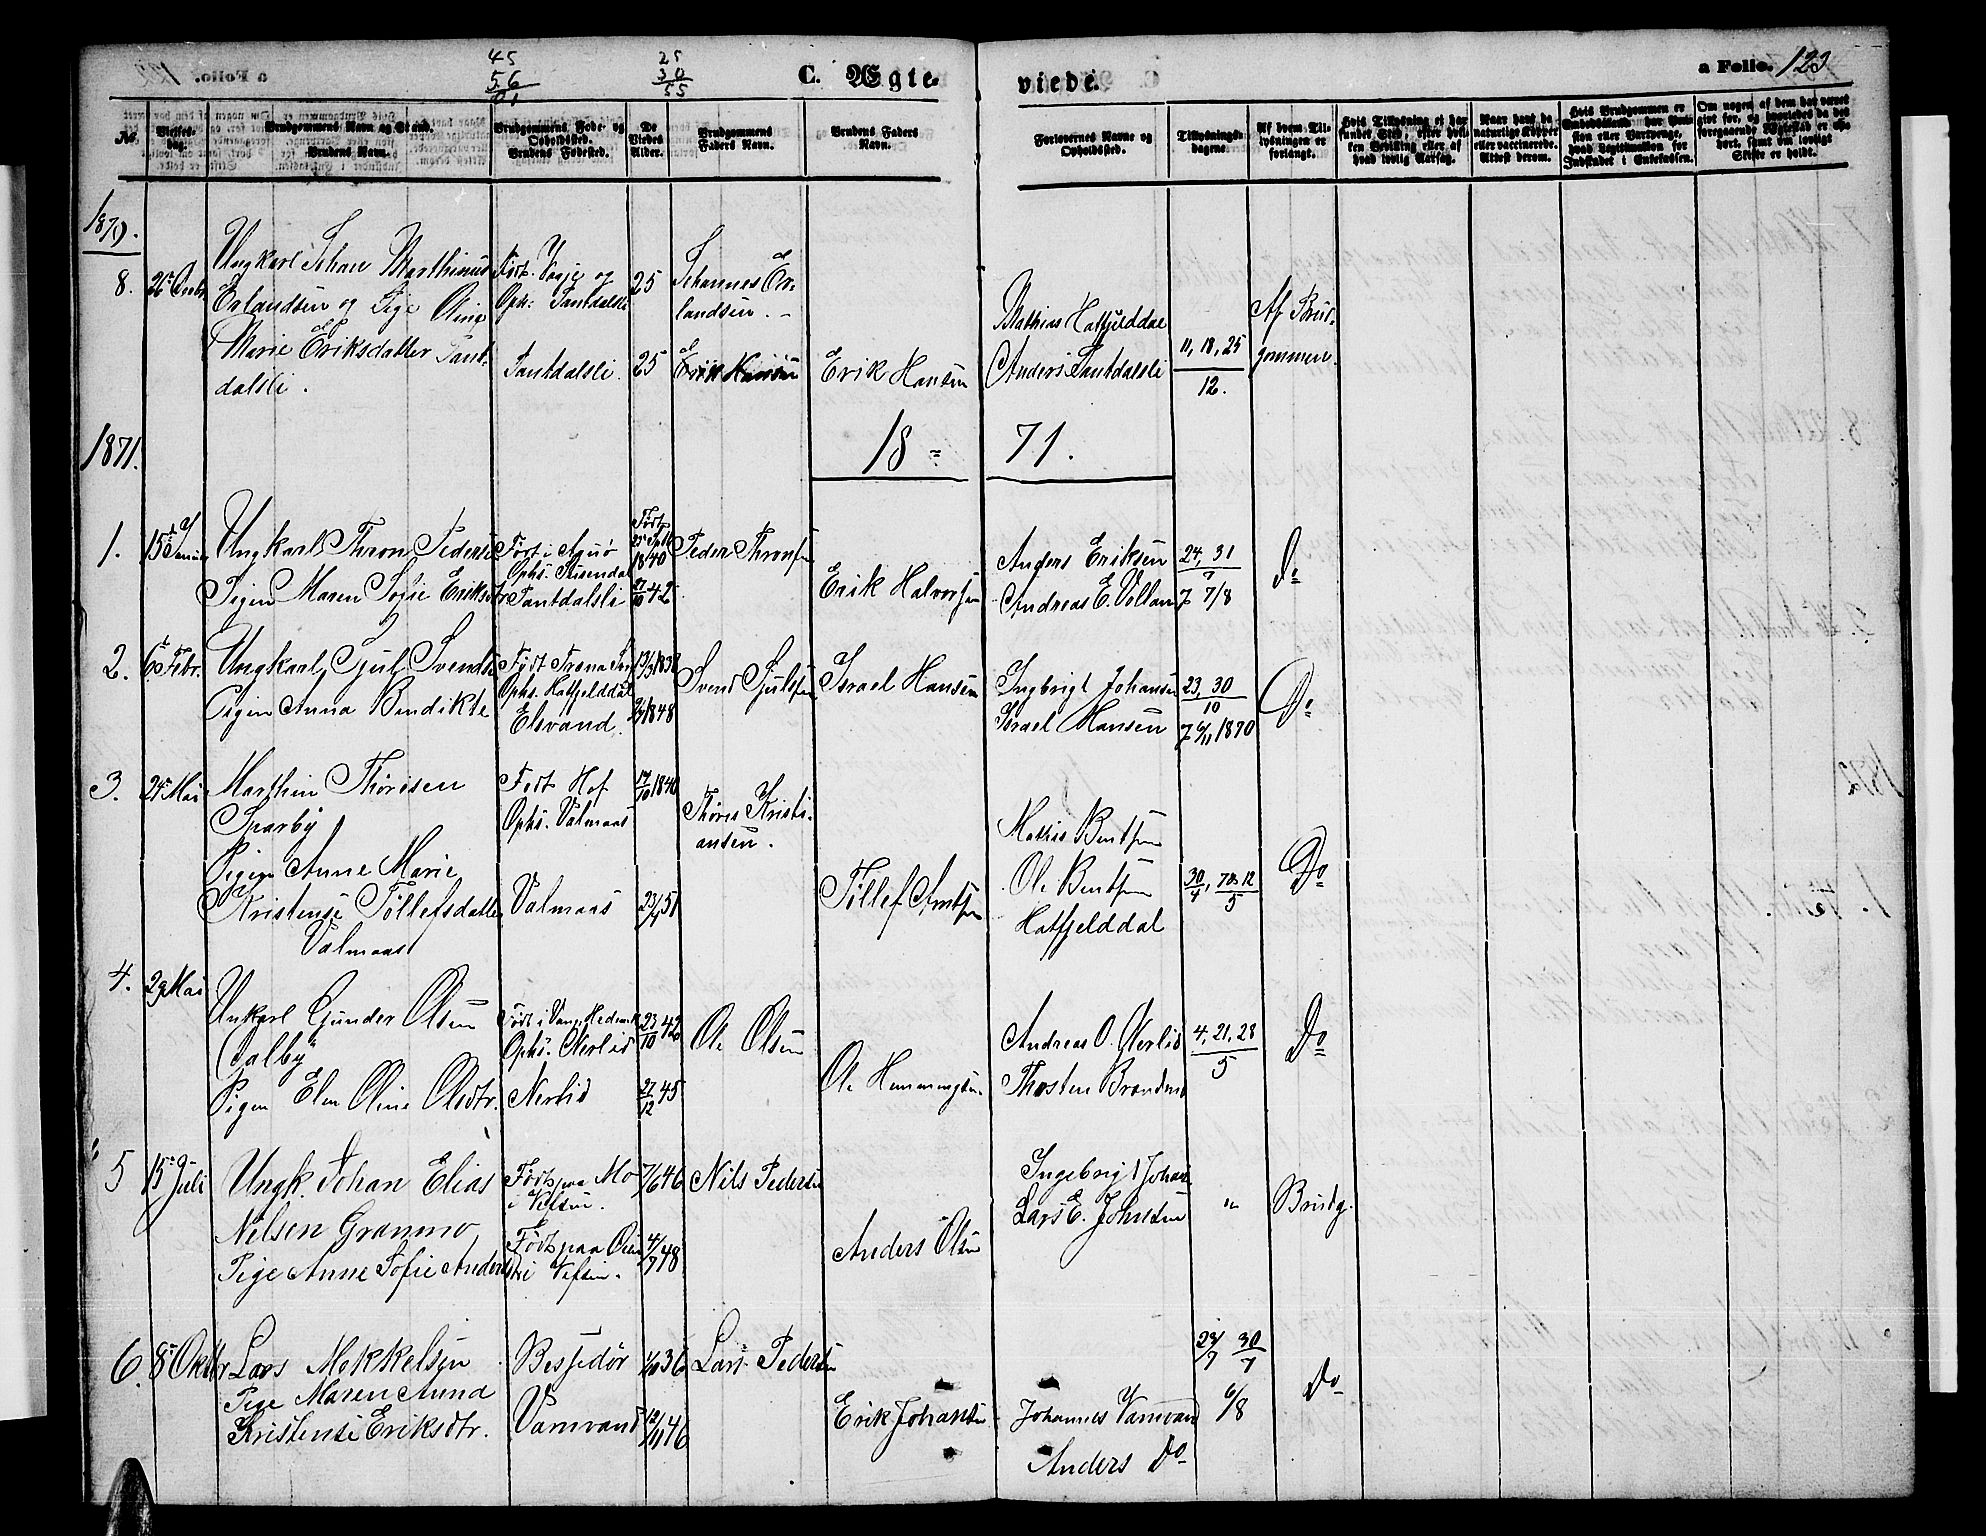 a Folio. 123
45
56
01
25
30
55
C. Ægteviede.
No.
Vielses-dag.
Brudgommens Navn og Stand.
Brudens Navn.
Brudgommens Føde- og Opholdssted.
Brudens Fødested.
De Viedes Alder.
Brudgommens Faders Navn.
Brudens Faders Navn.
Forlovernes Navne og Opholdssted.
Tillysnings-dagene.
Af hvem Til-lysningen er forlangt.
Hvis Tillysning ei har fundet Sted, efter hvil-ken Bevilling eller af hvad lovlig Aarsag.
Naar havt de naturlige Kopper eller vaccinerede. Attest derom.
1870.
8.
Ungkarl Johan Marthinus
Erlandsen og Pige Oline
Marie Eriksdatter Tant-
dalsli.
Født
Oph: Tantdalsli
Tantdalsli.
25
25
Johannes Er-
landsen.
Erik Hansen
Erik Hansen
Mathias Hatfjelddal
Anders Tantdalsli
11, 18, 25
12.
Af Brud-
gommen.
1871.
18 = 71.
1.
15de
Ungkarl Thron Pedersen
Pigen Maren Sofie Eriksdtr
Født i
Ophs. Susendal
Tantdalsli
Født
1840
27/10 42
Peder Thronsen
Erik Halvorsen
Anders Eriksen
Andreas E. Vollan
24, 31
7
7/8
Do
2.
6 Febr.
Ungkarl Gjul Svendsen
Pigen Anna Bendikte
Født Trena
Ophs. Hatfjelddal
Elsvand.
1838
1848
Svend Gjulsen
Israel Hansen
Ingbrigt Johansen
Israel Hansen
23, 30
10
6/11 1870
Do
3.
24 Mai
Marthin Thøresen
Sparby
Pigen Anne Marie
Kristense Tøllefsdatter
Valmaas
Født Hof
Ophs. Valmaas
Valmaas
17/10 1840
51
Thøres Kristi-
ansen.
Tøllef Arntsen
Mathias Bentsen
Ole Bentsen
Hatfjelddal
30/4, 7 og 12/5
Do
4.
29 Mai
Unkarl Gunder Olsen
Dalby
Pigen Elen Oline Olsdtr.
Født i Vang Hedemk
Ophs. Nerlid
Nerlid
23/10 42
27/12 45
Ole Olsen
Ole Hemmingsen
Andreas O. Nerlid
Thosten Brænmo
4, 21, 28
5
Do
5
15de Juli
Ungk. Johan Elias
Nilsen Granmo
Pige Anne Sofie Andersdtr
Født paa Mo
i Vefsen.
Født paa
i Vefsen.
7/6 46
4/7 48
Nils Pedersen
Anders Olsen
Ingebrigt Johans
Lars E. Johnsen
"
Brudg.
6.
8de Oktbr.
Lars Mekkelsen
Pige Maren Anna
Kristense Eriksdtr.
Bessedør
Vamvand
36
12/11 46
Lars Pedersen
Erik Johansen
Johannes Vamvan
Anders Do
23/7 30/7
6/8
Do